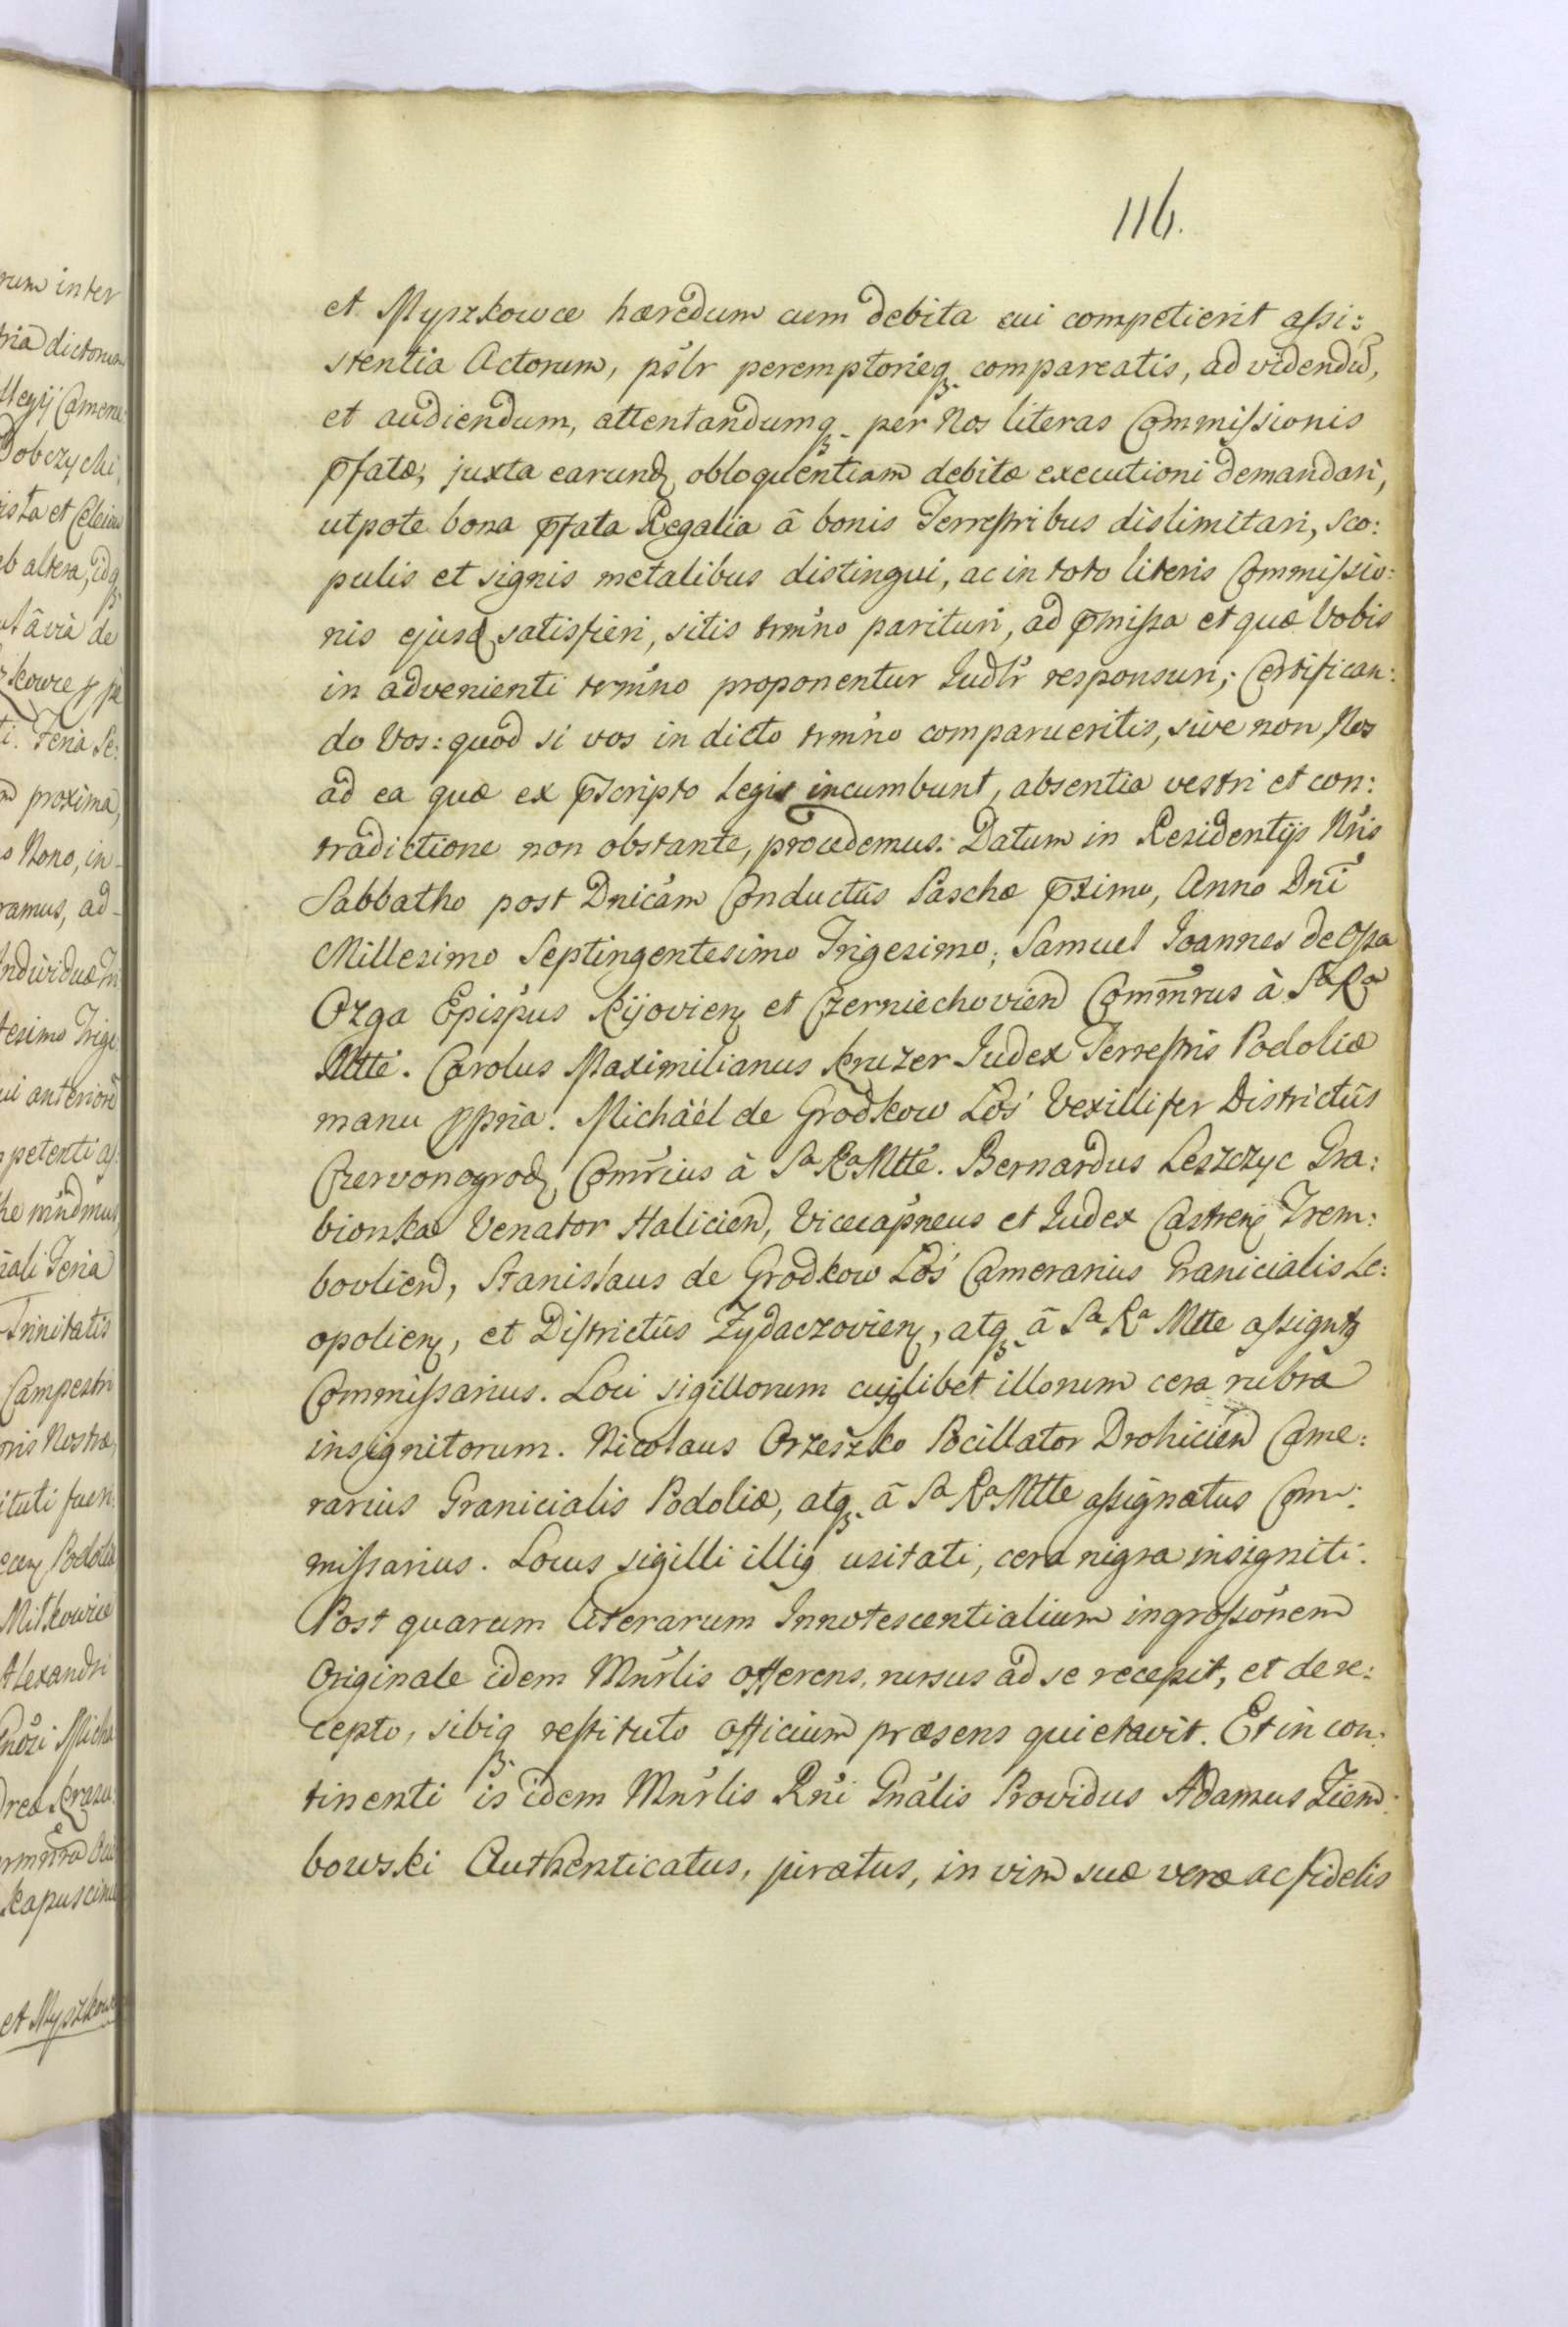 116.
et Myszkowce hæredum cum debita cui competierit assi:
stentia Actorum, psĺr peremptorieq̨ compareatis, ad videndū,
et audiendum, attentandumq̨ per Nos literas Commissionis
p̄fatæ, juxta earundꝫ obloquentiam debitæ executioni demandari,
utpote bona p̄fata Regalia â bonis Terrestribus dislimitari, sco:
pulis et signis metalibus distingui, ac in toto literis Commissio:
nis ejusd satisfieri, sitis trmńo parituri, ad p̄missa et quæ Vobis
in advenienti trmńo proponentur Judĺr responsuri; Certifican:
do Vos: quod si vos in dicto trmńo comparueritis, sive non, Nos
ad ea quæ ex p̄scripto Legis incumbunt, absentia vestri et con:
tradictione non obstante, procedemus. Datum in Residentijs Nr̃is
Sabbatho post Dnicám Conductûs Paschæ p̄ximo, Anno Dnĩ
Millesimo Septingentesimo Trigesimo; Samuel Joannes de Ossa
Ozga Episṕus Kijovienꝫ et Czerniechovien Comm̃rus à Sa Ra
Mtté. Carolus Maximilianus Kruzer Judex Terrestris Podoliæ
manu ppria. Michâél de Grodkow Łoś Vexillifer Districtûs
Czervonogrodꝫ Comr̃ius â Sa Ra Mtté. Bernardus Leszczyc Gra:
bionka Venator Halicien, Vicecapńeus et Judex Castrenꝫ Trem:
bovlien, Stanislaus de Grodkow Łoś Camerarius Granicialis Le:
opolienꝫ, et Districtûs Zydaczovienꝫ, atq̨ â Sa Ra Mtte assigntꝫ
Commissarius. Loci sigillorum cujꝫlibet illorum cera rubra
insignitorum. Nicolaus Orzeszko Pocillator Drohicien Came:
rarius Granicialis Podoliæ, atq̨ â Sa Ra Mtte assignatus Com:
missarius. Locus sigilli illiꝫ usitati, cera nigra insigniti.
Post quarum literarum Innotescentialium ingrossónem
Originale idem Mnŕlis offerens, rursus ad se recepit, et de re:
cepto, sibiq̨ restituto Officium præsens quietavit. Et in con:
tinenti is idem Mnŕlis Rńi Gnális Providus Adamus Ziem:
bowski Authenticatus, juratus, in vim suæ veræ ac fidelis
rum inter
Dobczychi
eb altera, idq̨
Feria Se:
proxima,
Nono, in
ramus, ad
Feria
Trinitatis
Campestri
ituti fuer
Podolia
Alexandri
et Myszkow